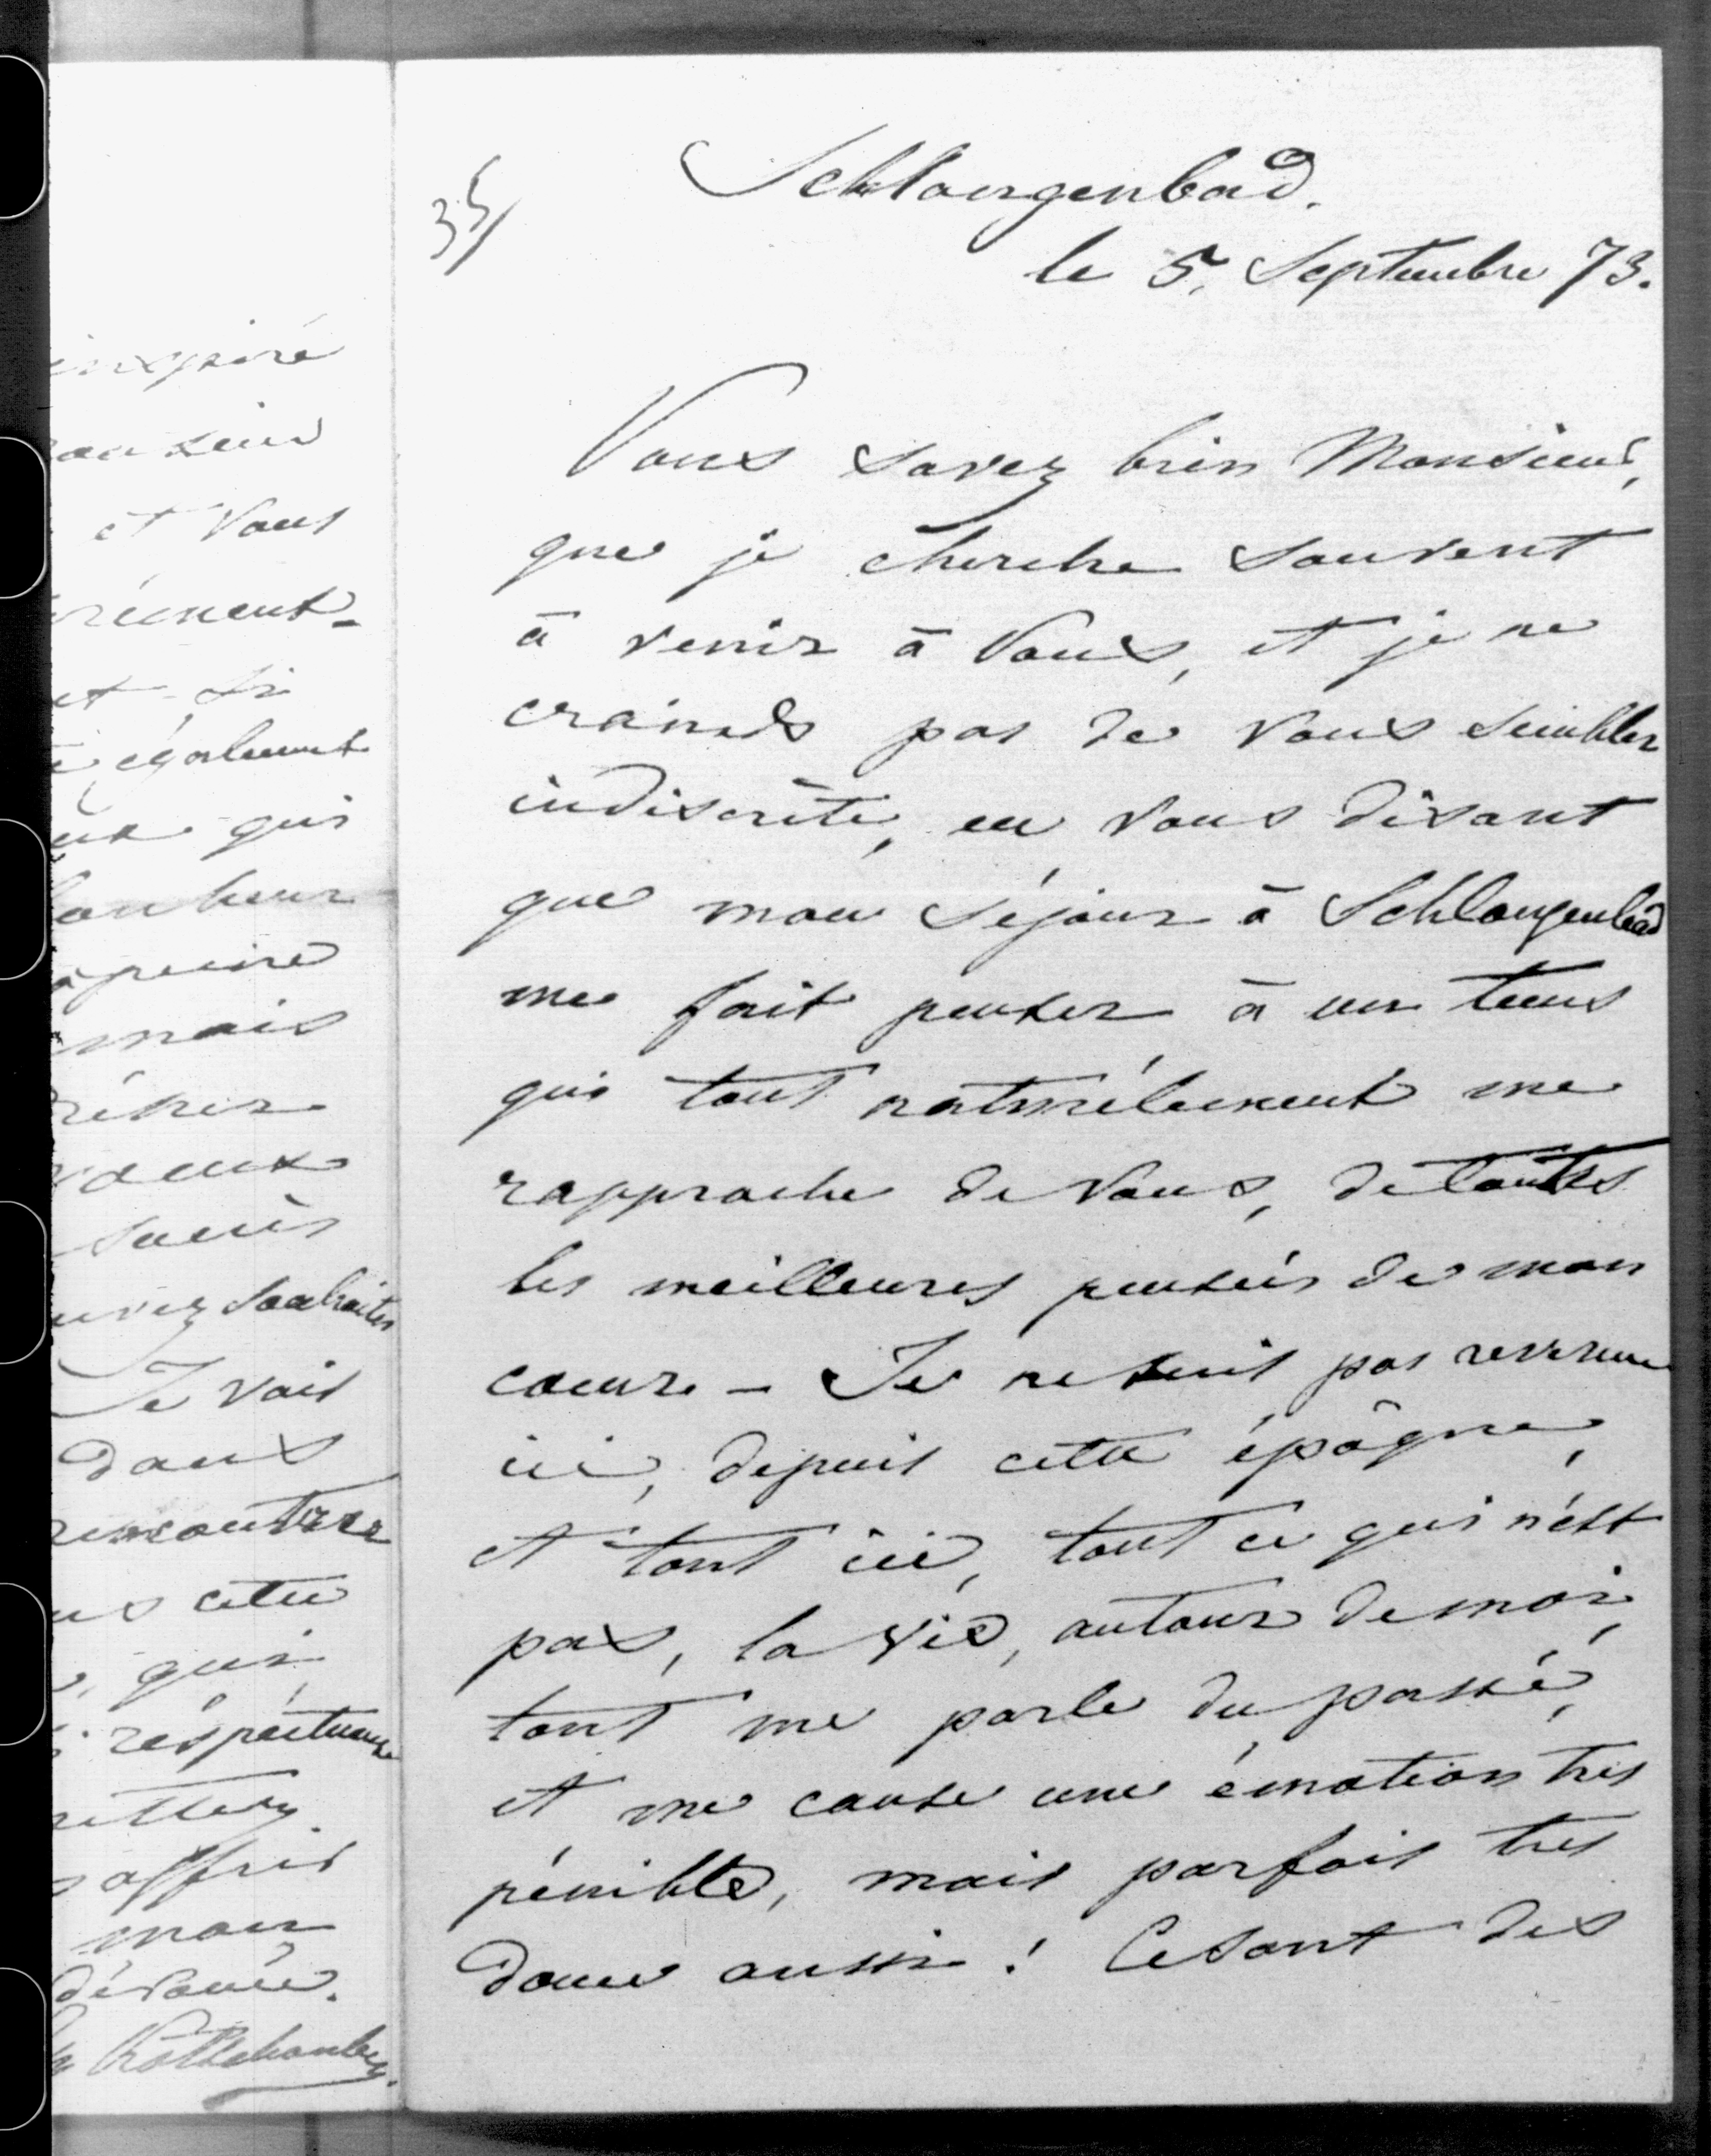 35/
Schlangenbad.
le 5. Septembre 73.
Vous savez bien Monsieur,
que je cherche souvent
à venir à Vous, et je ne
crainds pas de vous sembler
indiscrète, en vous disant
que mon séjour à Schlangenbad
me fait penser à un tems
qui tout naturélement me
rapproche de Vous, de toutes
les meilleures pensées de mon
coeur – Je ne suis pas revenue
ici, depuis cette épôque,
et tout ici, tout ce qui n'est
pas, la vie, autour de moi,
tout me parle du passé,
et me cause une émotion très
pénible, mais parfois très
douce aussi! Ce sont des
inspiré
et Vous
et si
également
qui
mais
souhaiter
Je vais
dans
rencontrer
cette
qui
respectueuse
offrir
mon
dévouée.